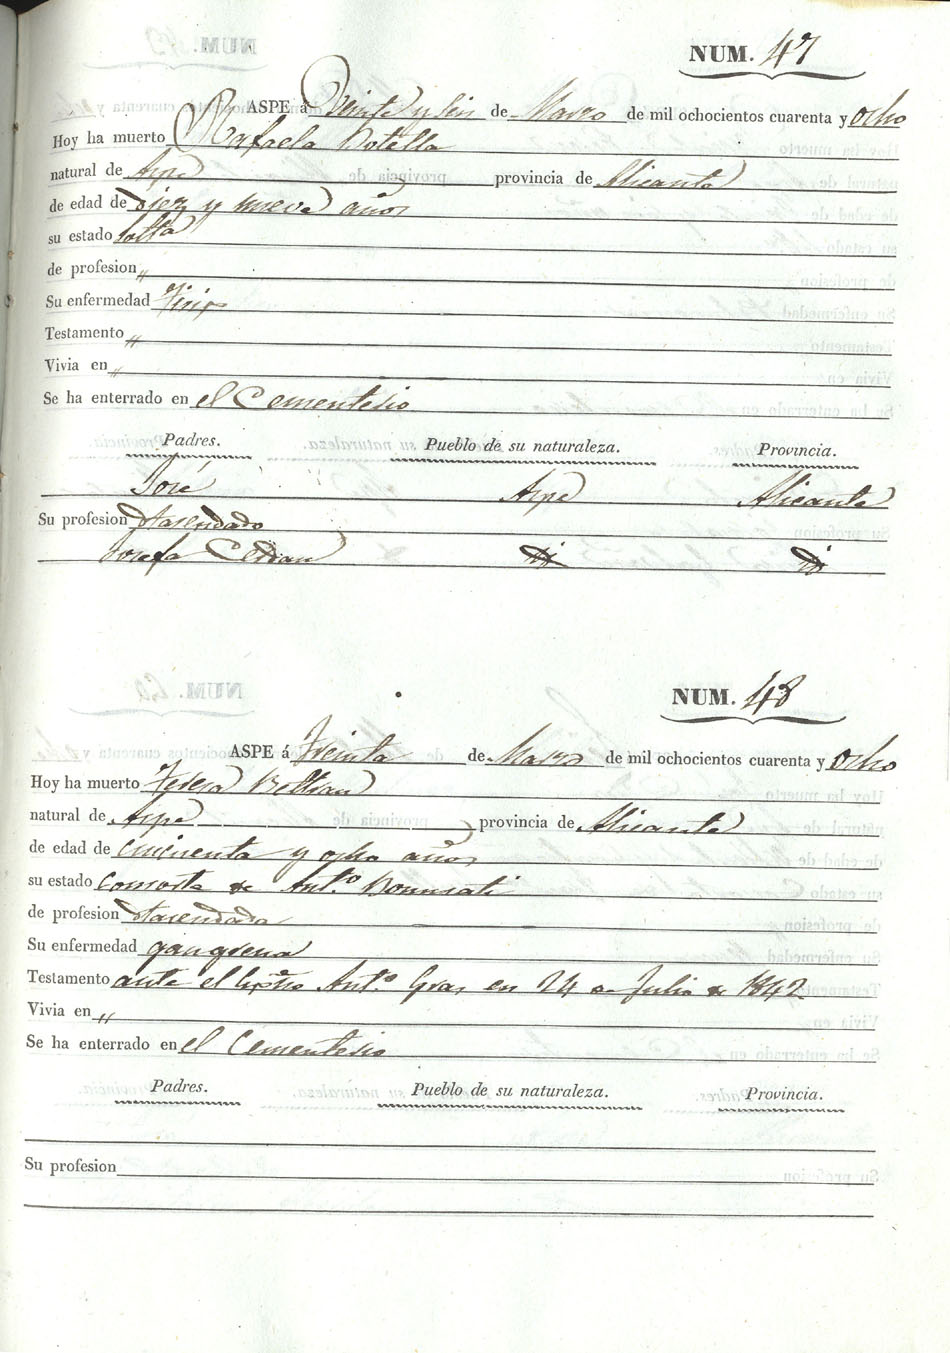 NUM. 47
ASPE á Veinte y seis de Marzo de mil ochocientos cuarenta y ocho
Hoy ha muerto Rafaela Botella
natural de Aspe provincia de Alicante
de edad de diez y nueve años
su estado solta
de profesion "
Su enfermedad Tisis
Testamento "
Vivia en "
Se ha enterrado en el Cementerio
Padres. Pueblo de su naturaleza. Provincia.
José Aspe Alicante
Su profesion Hasendado
Josefa Cerdan id id
NUM. 48
ASPE á Treinta de Marzo de mil ochocientos cuarenta y ocho
Hoy ha muerto Teresa Beltran
natural de Aspe provincia de Alicante
de edad de cincuenta y ocho años
su estado consorte de Ant.º Bonmati
de profesion Hasendada
Su enfermedad gangrena
Testamento ante el Ant.º Gras en 24 de Julio de 1842
Vivia en "
Se ha enterrado en el Cementerio
Padres. Pueblo de su naturaleza. Provincia.
Su profesion